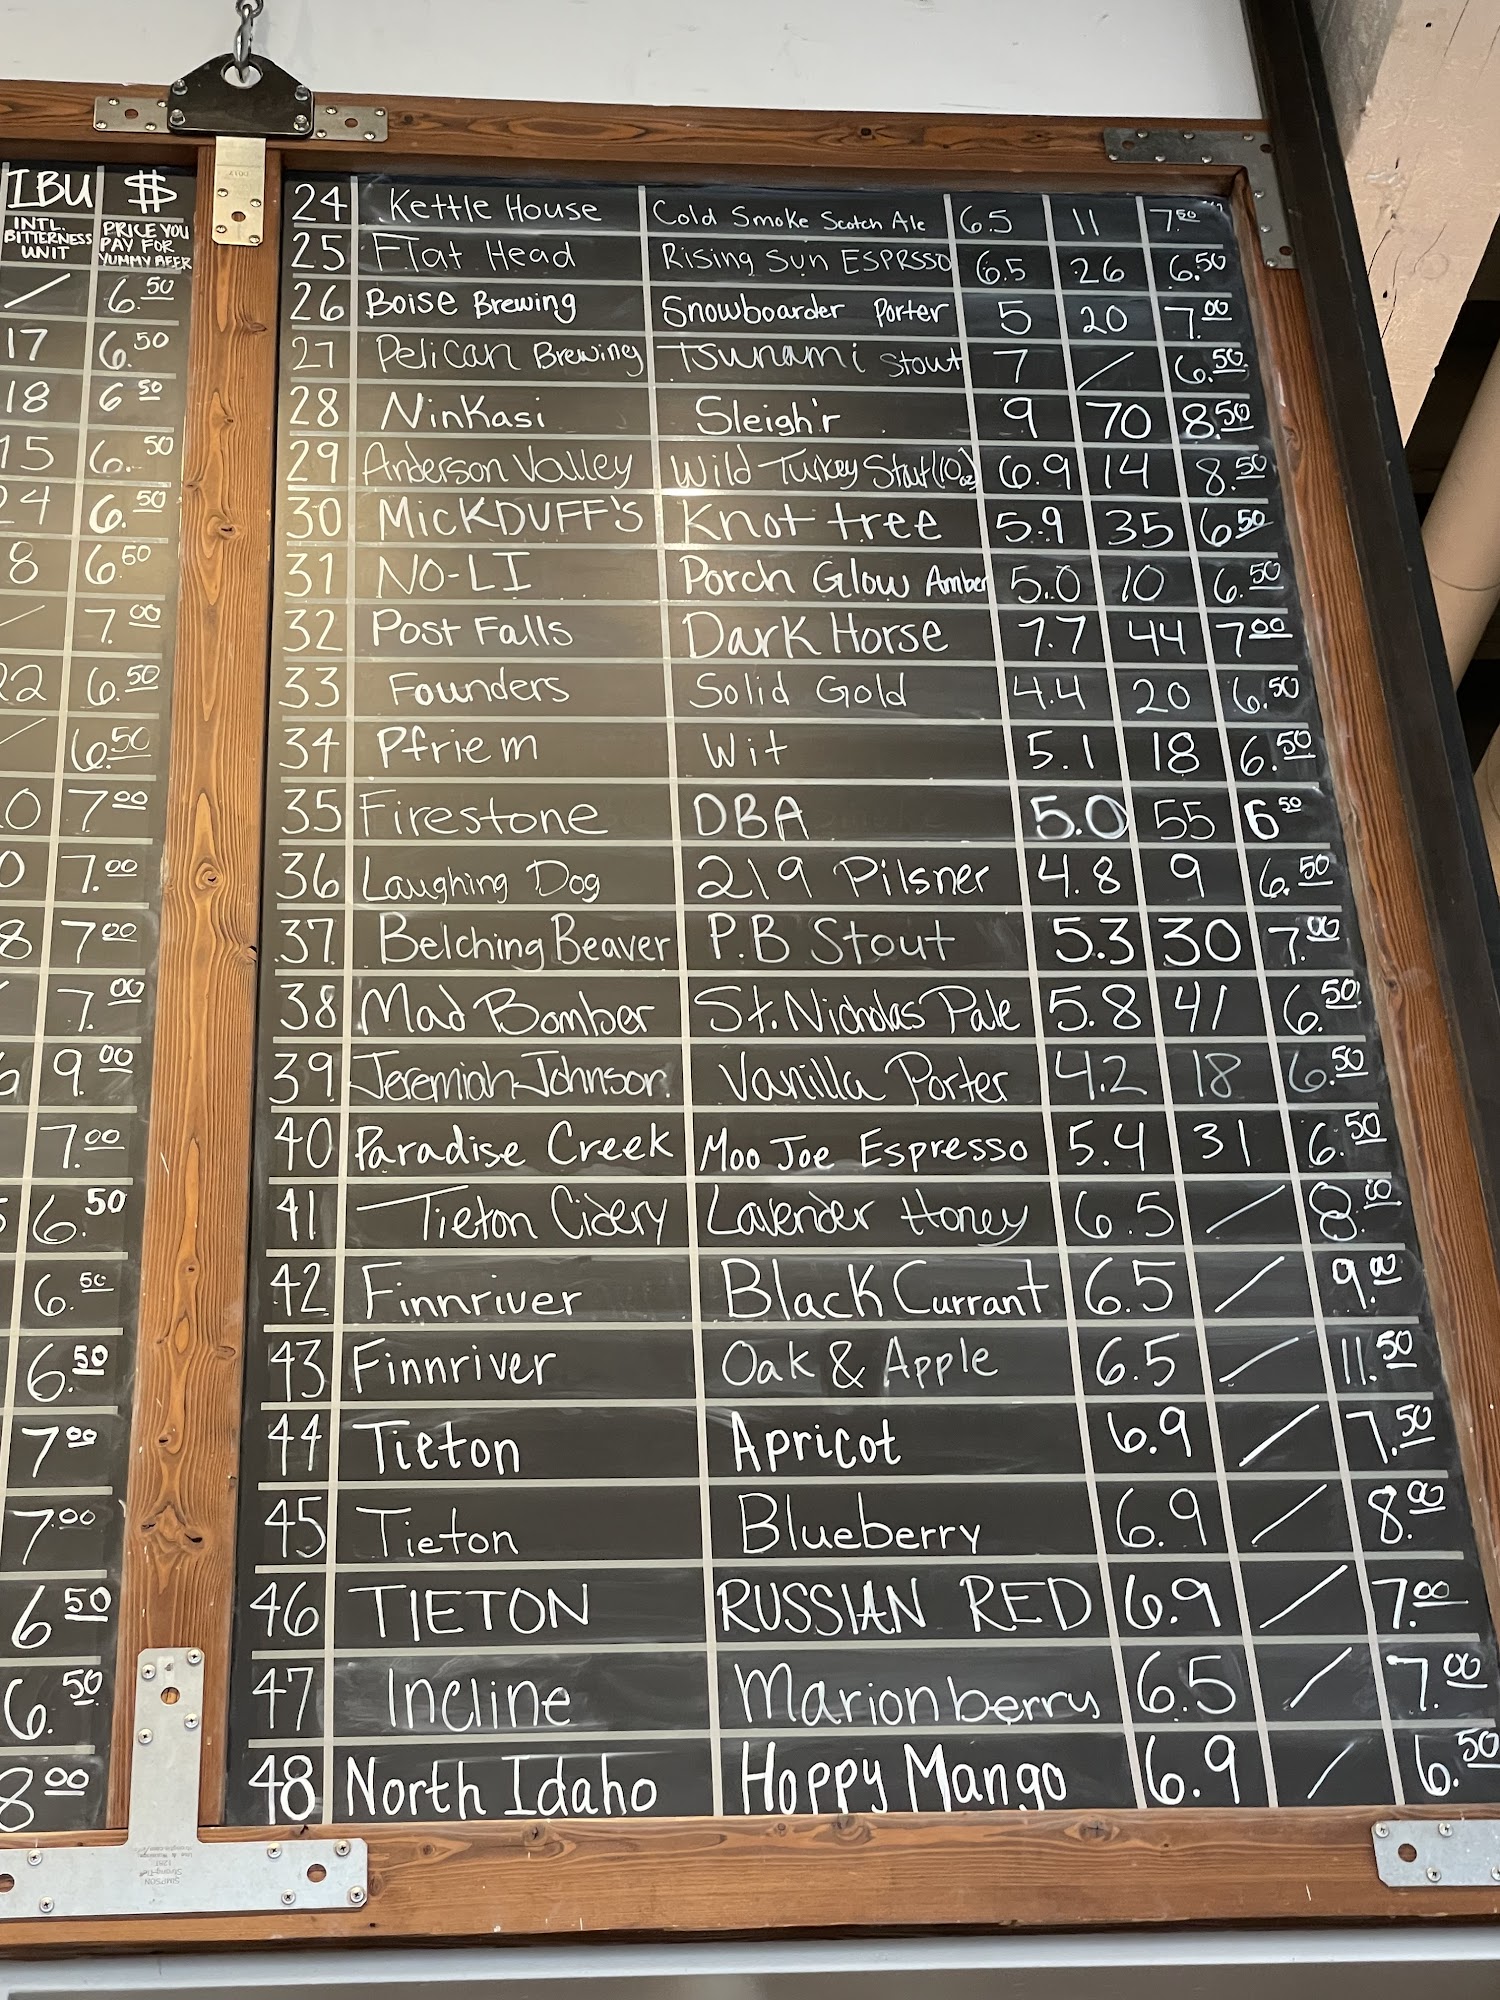 IBU $
INTL. BITTERNESS UNIT PRICE YOU PAY FOR YUMMY BEER
/ 6.50
17 6.50
18 6 50
15 6.50
24 6.50
8 6.50
/ 7.00
22 6.50
/ 6.50
0 7.00
0 7.00
8 7.00
7.00
9.00
7.00
6.50
6.50
6.50
7.00
7.00
6.50
6.50
8.00
24 Kettle House Cold Smoke Scotch Ale 6.5 11 7.50
25 Flat Head Rising Sun ESPRSSO 6.5 26 6.50
26 Boise Brewing Snowboarder Porter 5 20 7.00
27 Pelican Brewing Tsunami Stout 7 / 6.50
28 Ninkasi Sleigh'r 9 70 8.50
29 Anderson Valley Wild Turkey Stout (10oz) 6.9 14 8.50
30 MICKDUFF'S Knot tree 5.9 35 6.50
31 NO-LI Porch Glow Amber 5.0 10 6.50
32 Post Falls Dark Horse 7.7 44 7.00
33 Founders Solid Gold 4.4 20 6.50
34 Pfriem Wit 5.1 18 6.50
35 Firestone DBA 5.0 55 6 50
36 Laughing Dog 219 Pilsner 4.8 9 6.50
37 Belching Beaver P.B Stout 5.3 30 7.00
38 Mad Bomber St. Nicholas Pale 5.8 41 6.50
39 Jeremiah Johnson Vanilla Porter 4.2 18 6.50
40 Paradise Creek Moo Joe Espresso 5.4 31 6.50
41 Tieton Cidery Lavender Honey 6.5 / 8.00
42 Finnriver Black Currant 6.5 / 9.00
43 Finnriver Oak & Apple 6.5 / 11.50
44 Tieton Apricot 6.9 / 7.50
45 Tieton Blueberry 6.9 / 8.00
46 TIETON RUSSIAN RED 6.9 / 7.00
47 Incline Marionberry 6.5 / 7.00
48 North Idaho Hoppy Mango 6.9 / 6.50